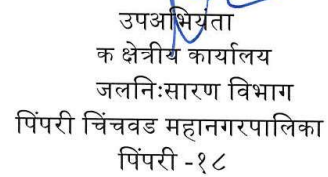 उपअभियंता
क क्षेत्रीय कार्यालय
जलनिःसारण विभाग
पिंपरी चिंचवड महानगरपालिका
पिंपरी -१८